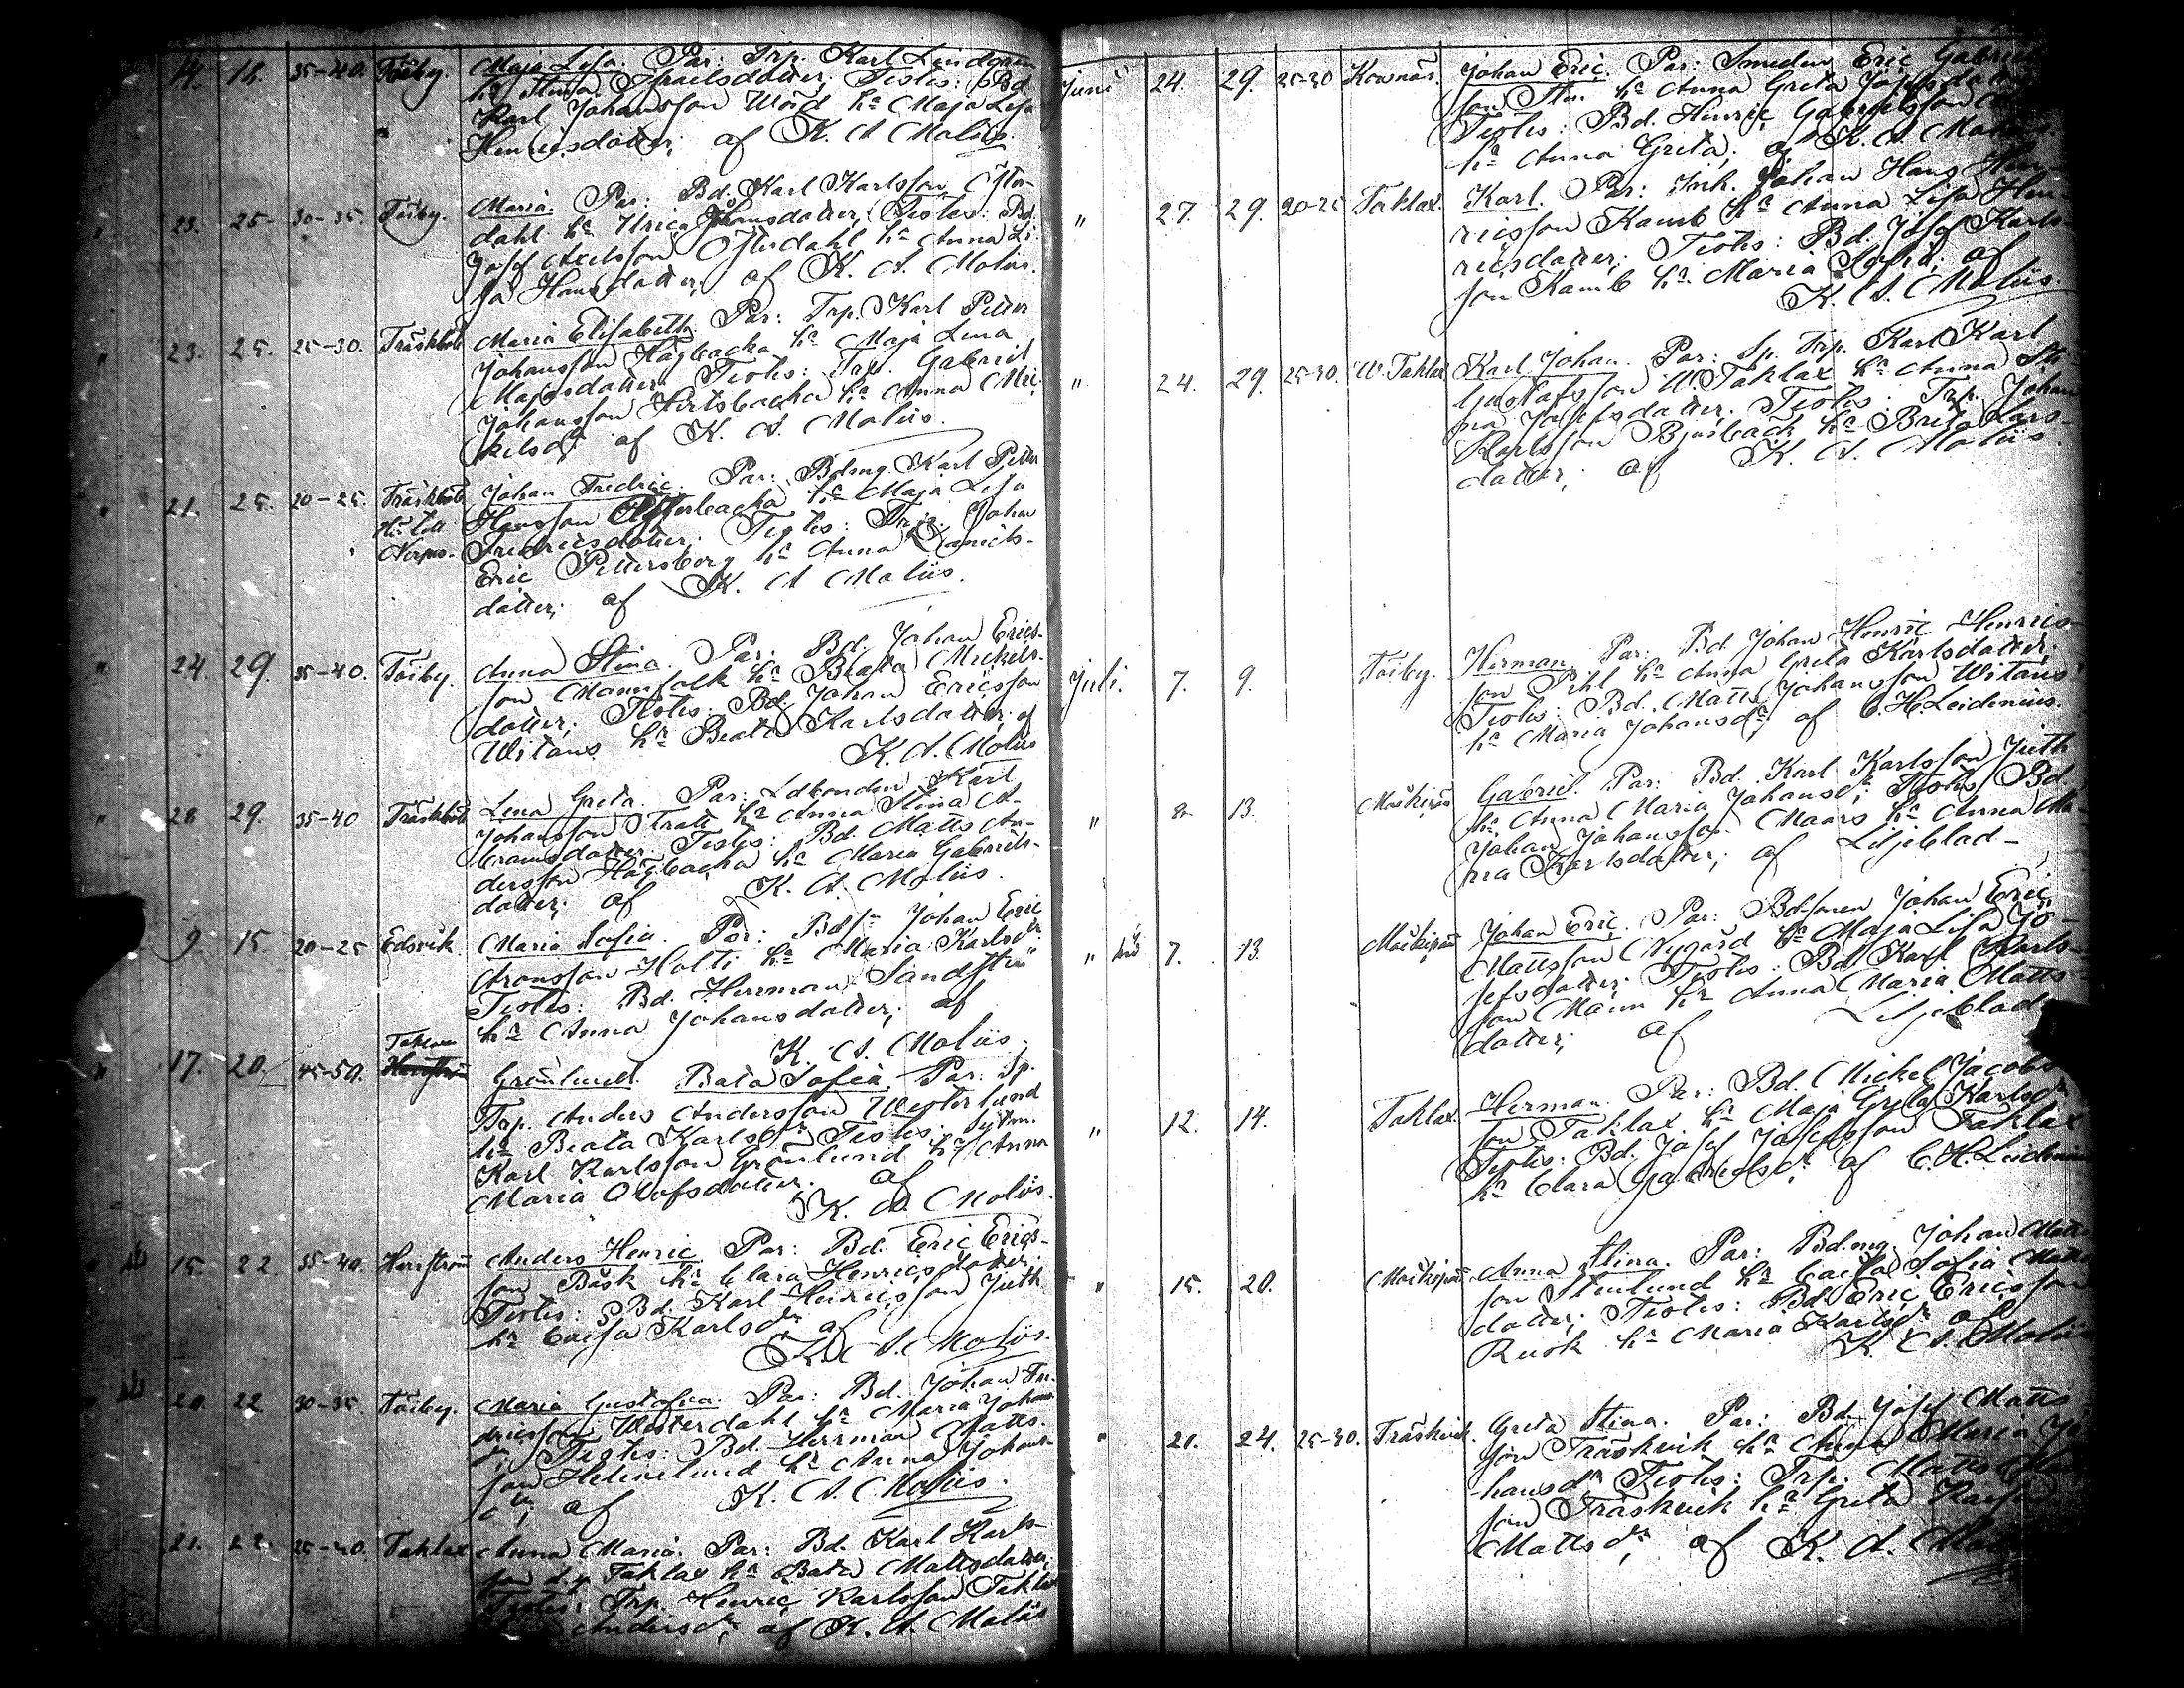 14. 18. 35-40. Töjby. Maja Lisa. Par: Trp. Karl Lindgren
hu Stina Israelsdotter; Testes: Bd.
Karl Johansson Wörd hu Maja Lisa
Henricsdotter; af K. A. Moliis.
23. 25 30-35. Töjby. Maria. Par: Bd. Karl Karlsson Öster-
dahl hu Ulrica Johansdotter; Testes: Bd.
Josef Axelsson Österdahl hu Anna Li-
sa Hansdotter; af K. A. Moliis.
" 23. 25. 25-30. Träskböle Maria Elisabeth. Par: Trp. Karl Petter
Johansson Högbacka hu Maja Lena
Majsdotter. Testes: Trp. Gabriel
Johansson Hertsbacka hu Anna Mic-
kelsdr. af K. A. Moliis.
21. 25. 20-25. Träskböle Johan Fredric. Par: Bdmg. Karl Petter
Hr till Hansson Åsterbacka hu Maja Lisa
Nerpes. Fredricsdotter; Testes: Trp. Johan
Eric Pettersborg hu Anna Daniels-
dotter; af K. A. Moliis.
" 24. 29. 35-40. Töjby. Anna Stina. Par: Bd. Johan Erics-
son Mannfolk hu Beata Mickels-
dotter; Testes: Bd. Johan Ericsson
Witans hu Beata Karlsdotter; af
K. A. Moliis
" 28 29. 35-40 Träskböle Lena Greta. Par: Ldbonden Karl
Johansson Strall hu Anna Stina A-
bramsdotter. Testes: Bd. Matts An-
dersson Högbacka hu Maria Gabriels-
dotter; af K. A. Moliis.
9. 15. 20-25 Edsvik. Maria Sofia. Par: Bds. Johan Eric
Aronsson Holti hu Maria Karlsdr.
Testes: Bd. Herrman Sandström
hu Anna Johansdotter; af
K. A. Moliis.
Taklax
" 17. 20. 45-50. Herrström Grönlund. Bata Sofia. Par: Sp.
Trp. Anders Andersson Westerlund
hu Beata Karlsdr. Testes: Sytm.
Karl Karlsson Grönlund hu Anna
Maria Olofsdotter. af
K. A. Moliis.
15. 22. 35-40. Herrström Anders Henric. Par: Bd. Eric Erics-
son Bäsk hu Clara Henricsdotter
Testes: Bd. Karl Henricsson Juth
hu Caisa Karlsdr. af
K. A. Moliis.
20. 22 30-35. Töjby. Maria Gustafva. Par: Bd. Johan Fre-
dricsson Westerdahl hu Maria Johans-
dr; Testes: Bd. Herrman Matts-
son Helenelund hu Anna Johans-
dr; af K. A. Moliis.
21. 22. 35-40. Taklax Anna Maria. Par: Bd. Karl Karls-
son d.y. Taklax hu Bata Mattsdotter;
Testes: Trp. Henric Karlsson Taklax
Andersdr; af K. A. Moliis
Juni 24. 29. 25-30 Kornäs. Johan Eric. Par: Smeden Eric Gabriels-
son Sten hu Anna Greta Josefsdotter
Testes: Bd. Henric Gabrielsson
hu Anna Greta; af K. A. Moliis.
" 27. 29. 20-25 Taklax. Karl. Par: Inh. Johan Hans Hen-
ricsson Kamb hu Anna Lisa Hen-
ricsdotter; Testes: Bd. Josef Karls-
son Kamb hu Maria Sofia; af
K. A. Moliis.
" 24. 29. 25-30. W. Taklax Karl Johan. Par: Sp. Trp. Karl Karl
Gustafsson W. Taklax hu Anna So-
fia Josefsdotter. Testes: Trp. Johan
Karlsson Bjurback hu Brita Lars-
dotter; af K. A. Moliis.
Juli. 7. 9. Töjby. Herman. Par: Bd. Johan Henric Henrics-
son Pihl hu Anna Greta Karlsdotter;
Testes: Bd. Matts Johansson Witans
hu Maria Johansdr; af C. H. Leidenius.
" 8 13. Molkipää Gabriel. Par: Bd. Karl Karlsson Juth
hu Anna Maria Johansdr; Testes Bd.
Johan Johansson Maars hu Anna Ma-
ria Karlsdotter; af Liljeblad-
" 7. 13. Molkipää Johan Eric. Par: Bdsonen Johan Eric
Mattsson Nygård hu Maja Lisa Jo-
sefsdotter; Testes: Bd. Karl Karls-
son Männ hu Anna Maria Matts-
dotter; af Liljeblad
" 12. 14. Taklax. Herman. Par: Bd. Mickel Jacobs-
son Taklax. hu Maja Greta Karlsdr
Testes: Bd. Josef Josefsson Taklax
hu Clara Gabrielsdr; af C. H. Leidenius
" 15. 20. Molkipää Anna Stina. Par: Bdmg. Johan Matts-
son Stenlund hu Caisa Sofia Matts-
dotter; Testes: Bd. Eric Ericsson
Rusk hu Maria Karlsdr af
K. A. Moliis
" 21. 24. 25-30. Träskvik. Greta Stina. Par: Bd. Josef Matts-
son Träskvik hu Anna Maria Jo-
hansdr Testes: Trp. Matts
son Träskvik hu Greta Kaisa
Mattsdr; af K. A. Moliis